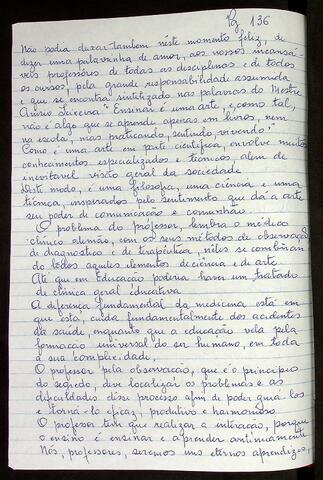 Pg 136
Não podia deixar também neste momento feliz, de
dizer uma palavrinha de amor, aos nossos incansá-
veis professores de todas as disciplinas e de todos
os cursos, pela grande responsabilidade assumida
e que se encontra sintetizado nas palavras do Mestre
Anísio Teixeira "Ensinar é uma arte, e como tal,
não é algo que se aprende apenas em livros, nem
na escola, mas praticando, sentindo, vivendo."
Como é uma arte em parte científica, envolve muitos
conhecimentos especializados e técnicos, além de
inevitável visão geral da sociedade
Deste modo, é uma filosofia, uma ciência e uma
técnica, inspirados pelo sentimento que dá a arte
seu poder de comunicação e comunhão.
O problema do professor, lembra o médico
clínico alemão, com os seus métodos de observação
de diagnostico e de terapêutica, neles se combinan
do todos aqueles elementos de ciência e de arte.
Até que em Educação poderia haver um tratado
de clínica geral educativa.
A diferença fundamental da medicina está em
que esta, cuida fundamentalmente dos acidentes
da saúde, enquanto que a educação vela pela
formação universal do ser humano, em toda
a sua complexidade.
O professor pela observação, que é o princípio
do segredo, deve localizar os problemas e as
dificuldades desse processo afim de poder guiá-los
e torná-lo eficaz, produtivo e harmonioso.
O professor tem que realizar a interação, porque
o ensino é ensinar e aprender continuamente
Nós, professores, seremos uns eternos aprendizes,